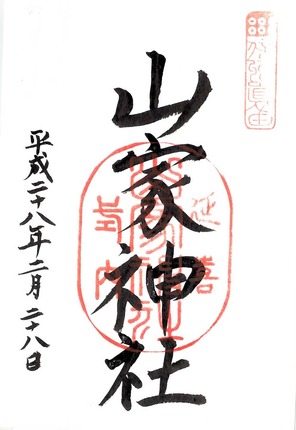 山家神社
延喜
式内
平成二十八年二月二十八日